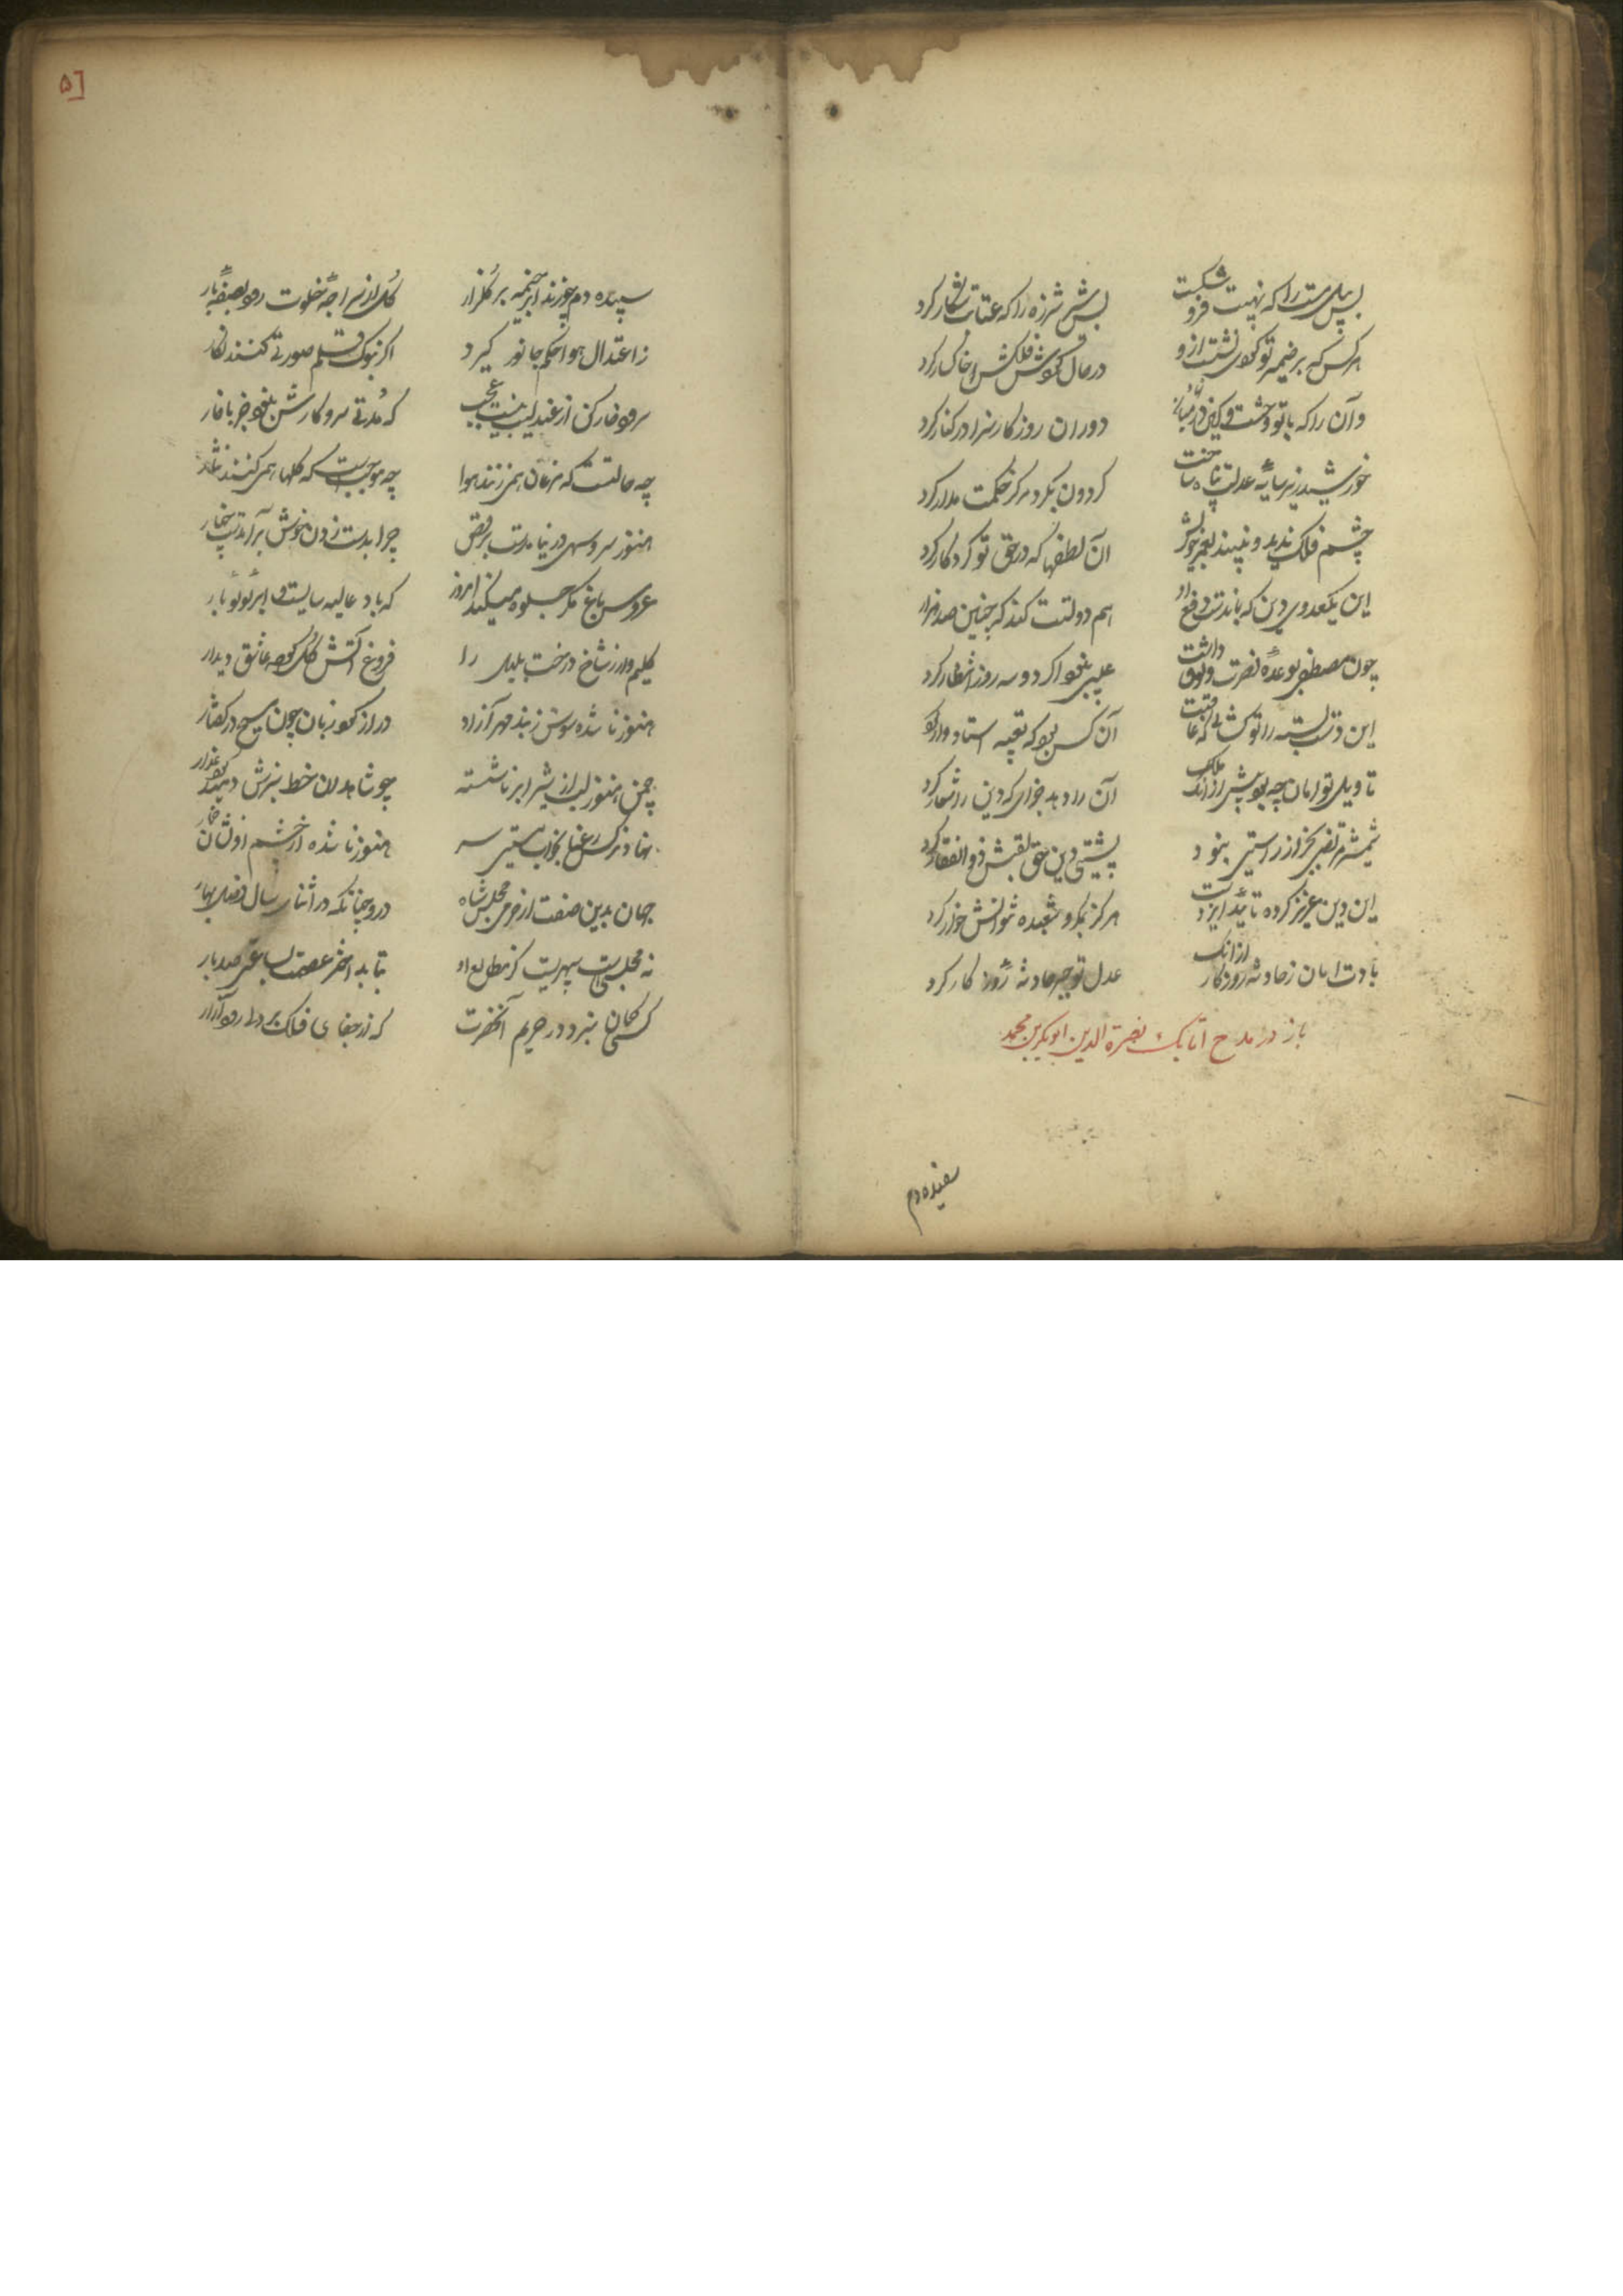 بس پیل مست را که نهیبت فرو شکست
بس شیر شرزه را که عتابت شکار کرد
هر کس که بر ضمیر تو گردی نشست ازو
در حال گوش فلکش خاکسار کرد
وآن را که با تو وحشت و کین در میانه
دوران روزگار سزا در کنار کرد
خورشید زیر سایه عدلت پناه ساخت
گردون بگرد مرکز حکمت مدار کرد
چشم فلک ندید و نبیند بعمر خویش
آن لطفها که در حق تو کردگار کرد
این یکعدوی دین که بماندست دفع او
هم دولتت کند که چنین صد هزار
چون مصطفی بوعده نصرت وثوق داشت
عیبی نبود اگر دو سه روز انتظار کرد
این دست بسته را تو گشائی که عاقبت
آن کس بود که تعبیه استادوار کرد
تاویل تو امان چه بود پیش از آنک ملک
آن را دهد خدای که دین را شعار کرد
شمشیر مرتضی بجز از راستی نبود
پشتی دین حق لقبش ذوالفقار کرد
این دین عزیز کرده تائید ایزدست
هرگز بمکر و شعبده نتوانش خوار کرد
بادت امان ز حادثه روزگار از آنک
عدل تو جبر حادثه روزگار کرد
باز در مدح اتابک نصرة الدین ابوبکر بن محمد
سفیده دم
۵٦
سپیده دم چو زند ابر خیمه بر گلزار
گل از سراچه خلوت رود بصفه بار
ز اعتدال هوا حکم جانور گیرد
اگر بنوک قلم صورتی کنند نگار
سرود خارکن از عندلیب نیست عجب
که مدتی سر و کارش نبود جز با خار
چه حالتست که مرغان همی زنند هوا
چه موجبست که گلها همی کنند نثار
هنوز سرو سهی در نیامدست برقص
چرا بدست زدن خوش برآمدست چنار
عروس باغ مگر جلوه میکند امروز
که باد غالیه سایست و ابر لولوبار
کلیم وار ز شاخ درخت بلبل را
فروغ آتش گل کرد عاشق دیدار
هنوز ناشده سوسن ز بند مهد آزاد
دراز کرد زبان چون مسیح در گفتار
چمن هنوز لب از شیر ابر ناشسته
چو شاهدان خط سبزش دمید گرد عذار
نهاد نرگس رعنا بخواب مستی سر
هنوز ناشده از چشم او نشان خمار
جهان بدین صفت از خرمی مجلس شاه
درو چنانکه در اثنای سال فصل بهار
نه مجلسست سپهریست کز مطالع او
بتابد اختر عصمت بساعتی صد بار
کسی گمان نبرد در حریم آنحضرت
که از جفای فلک بر دلی رود آزار